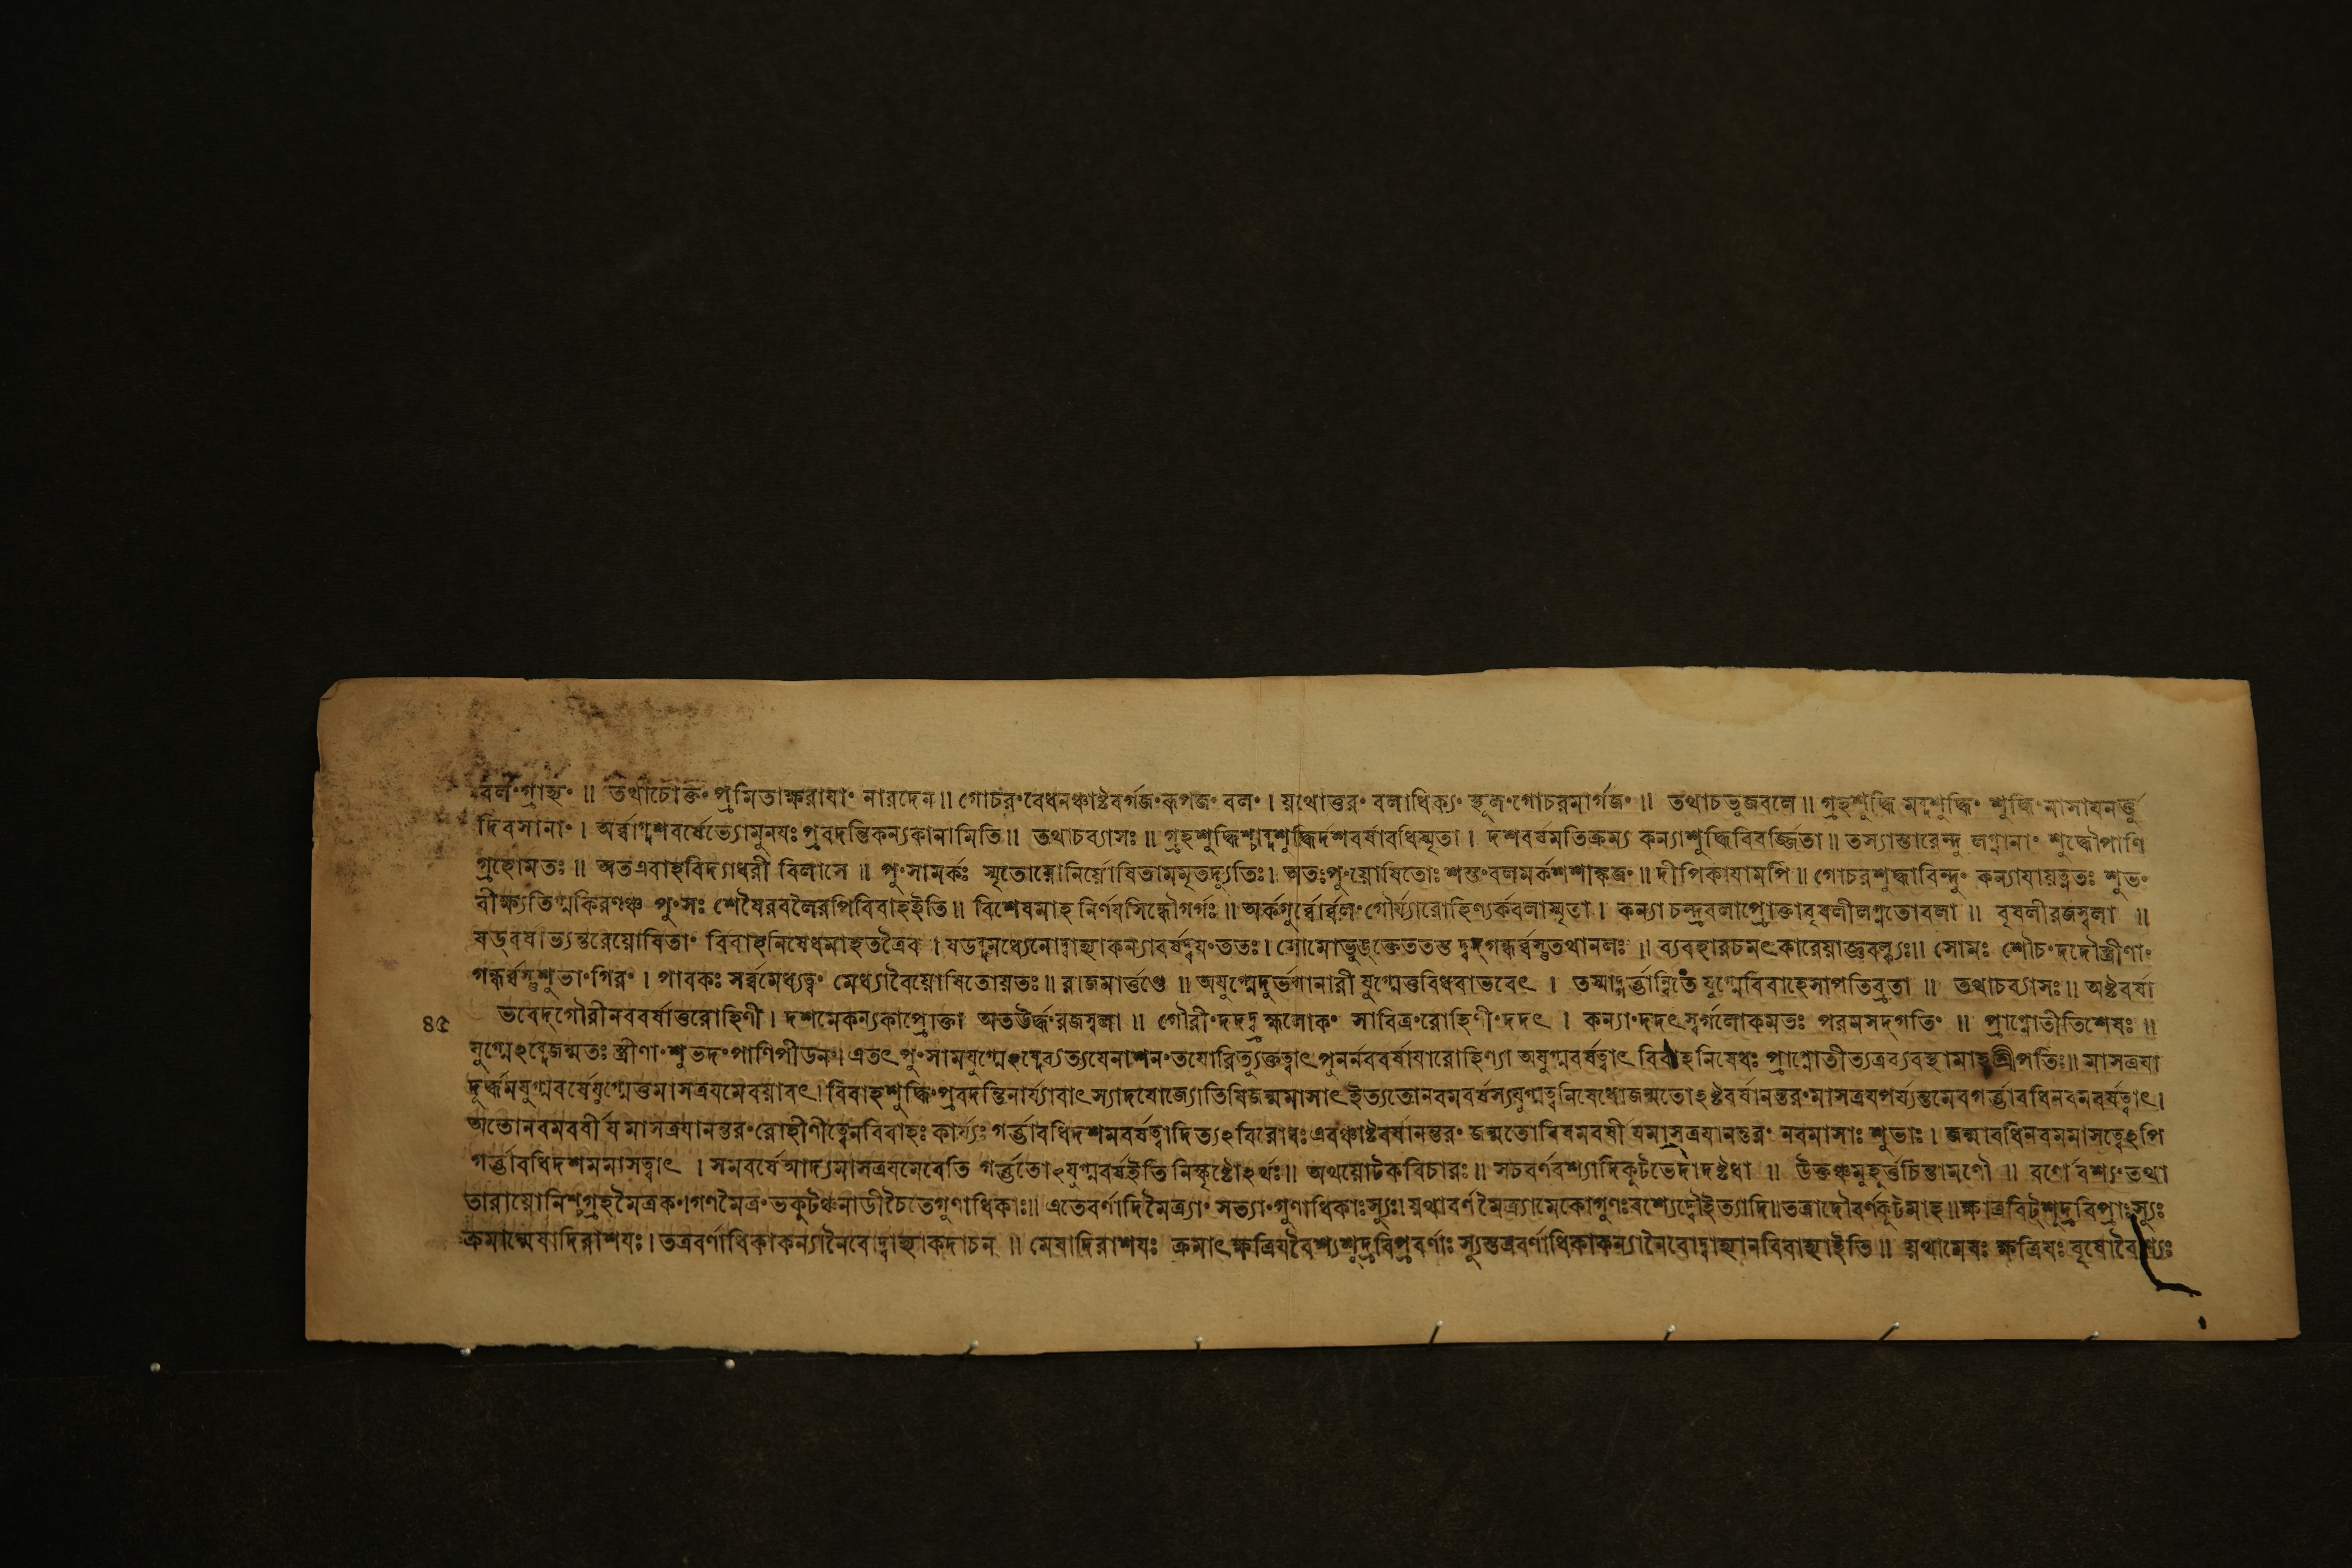 বলং গ্রাহ্যং ॥ তথাচোক্তং প্রমিতাক্ষরায়াং নারদেন ॥ গোচরং বেধনঞ্চাষ্টবর্গজং রূপজং বলং । যথোত্তরং বলাধিক্যং স্থূলং গোচরমার্গজং ॥ তথাচ ভুজবলে ॥ গ্রহশুদ্ধি মব্দশুদ্ধিং শুদ্ধিং মাসায়নর্ত্তু
দিবসানাং । অর্ব্বাগ্দশবর্ষেভ্যোমুনয়ঃ প্রবদন্তিকন্যকানামিতি ॥ তথাচব্যাসঃ ॥ গ্রহশুদ্ধিশ্চাব্দশুদ্ধির্দশবর্ষাবধিস্মৃতা । দশবর্ষমতিক্রম্য কন্যাশুদ্ধিবিবর্জ্জিতা ॥ তস্যাস্তারেন্দু লগ্নানাং শুদ্ধৌপাণি
গ্রহোমতঃ ॥ অতএবাহবিদ্যাধরী বিলাসে ॥ পুংসামর্কঃ স্মৃতোযোনির্যোষিতামমৃতদ্যুতিঃ । অতঃপুংযোষিতোঃ শস্তং বলমর্কশশাঙ্কজং ॥ দীপিকায়ামপি ॥ গোচরশুদ্ধাবিন্দুং কন্যায়াযত্নতঃ শুভং
বীক্ষ্যতিগ্মকিরণঞ্চ পুংসঃ শেষৈরবলৈরপিবিবাহইতি ॥ বিশেষমাহ নির্ণয়সিন্ধৌগর্গঃ ॥ অর্কগুর্ব্বোর্ব্বলং গৌর্য্যারোহিণ্যর্কবলাস্মৃতা । কন্যা চন্দ্রবলাপ্রোক্তাবৃষলীলগ্নতোবলা ॥ বৃষলীরজস্বলা ॥
ষড়বর্ষাভ্যন্তরেযোষিতাং বিবাহনিষেধমাহতত্রৈব । ষডব্দমধ্যেনোদ্বাহ্যাকন্যাবর্ষদ্বয়ং ততঃ । সোমোভুঙক্তেততস্ত দ্বদ্গন্ধর্ব্বস্তুতথানলঃ ॥ ব্যবহারচমৎকারেযাজ্ঞবল্ক্যঃ ॥ সোমঃ শৌচং দদৌস্ত্রীণাং
গন্ধর্ব্বস্তুশুভাং গিরং । পাবকঃ সর্ব্বমেধ্যত্বং মেধ্যাবৈযোষিতোযতঃ ॥ রাজমার্ত্তণ্ডে ॥ অযুগ্মেদুর্ভগানারী যুগ্মেতুবিধবাভবেৎ । তস্মাদ্গর্ভান্বিতে যুগ্মেবিবাহেসাপতিব্রতা ॥ তথাচব্যাসঃ ॥ অষ্টবর্ষা
৪৫ ভবেদ্গৌরীনববর্ষাতুরোহিণী । দশমেকন্যকাপ্রোক্তা অতঊর্দ্ধং রজস্বলা ॥ গৌরীং দদদ্ব্রহ্মলোকং সাবিত্রং রোহিণীং দদৎ । কন্যাং দদৎস্বর্গলোকমতঃ পরমসদ্গতিং ॥ প্রাপ্নোতীতিশেষঃ ॥
যুগ্মেঽব্দেজন্মতঃ স্ত্রীণাং শুভদং পাণিপীডনং । এতৎ পুংসামযুগ্মেঽব্দেব্যত্যয়েনাশনং তয়োরিত্যুক্তত্বাৎ পুনর্নববর্ষায়ারোহিণ্যা অযুগ্মবর্ষত্বাৎ বিবাহনিষেধঃ প্রাপ্নোতীত্যত্রব্যবস্থামাহশ্রীপতিঃ ॥ মাসত্রয়া
দূর্দ্ধমযুগ্মবর্ষেযুগ্মেতুমাসত্রয়মেবযাবৎ । বিবাহশুদ্ধিং প্রবদন্তিনার্য্যাবাৎস্যাদয়োজ্যোতিষিজন্মমাসাৎ ইত্যতোনবমবর্ষস্যযুগ্মত্বনিষেধোজন্মতোঽষ্টবর্ষানন্তরং মাসত্রয়পর্য্যন্তমেবগর্ভাবধিনবমবর্ষত্বাৎ ।
অতোনবমবর্ষীয় মাসত্রয়ানন্তরং রোহীণীত্বেনবিবাহঃ কার্য্যঃ গর্ভাবধিদশমবর্ষত্বাদিত্যঽবিরোধঃ এবঞ্চাষ্টবর্ষানন্তরং জন্মতোবিষমবর্ষী য়মাসত্রয়ানন্তরং নবমাসাঃ শুভাঃ । জন্মাবধিনবমমাসত্বেঽপি
গর্ভাবধিদশমমাসত্বাৎ । সমবর্ষেআদ্যমাসত্রয়মেবেতি গর্ভতোঽযুগ্মবর্ষইতি নিষ্কৃষ্টোঽর্থঃ ॥ অথযোটকবিচারঃ ॥ সচবর্ণবশ্যাদিকূটভেদাদষ্টধা ॥ উক্তঞ্চমুহূর্ত্তচিন্তামণৌ ॥ বর্ণোবশ্যং তথা
তারাযোনিশ্চগ্রহমৈত্রকং । গণমৈত্রং ভকুটঞ্চনাডীচৈতেগুণাধিকাঃ ॥ এতেবর্ণাদিমৈত্র্যাং সত্যাং গুণাধিকাঃস্যুঃ । যথাবর্ণ মৈত্র্যামেকোগুণঃবশ্যেদ্বৌইত্যাদি ॥ তত্রাদৌবর্ণকূটমাহ ॥ ক্ষাত্রবিট্শূদ্রবিপ্রাঃস্যুঃ
ক্রমান্মেষাদিরাশয়ঃ । তত্রবর্ণাধিকাকন্যানৈবোদ্বাহ্যাকদাচন ॥ মেষাদিরাশয়ঃ ক্রমাৎক্ষত্রিয়বৈশ্যশূদ্রবিপ্রবর্ণাঃ স্যুস্তত্রবর্ণাধিকাকন্যানৈবোদ্বাহ্যানবিবাহ্যাইতি ॥ যথামেষঃ ক্ষত্রিয়ঃ বৃষোবৈশ্যঃ